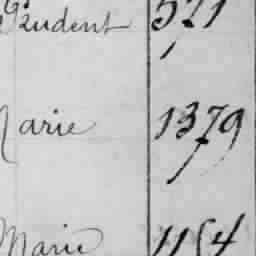 Prudent 571
Marie 1379
Marie 1154